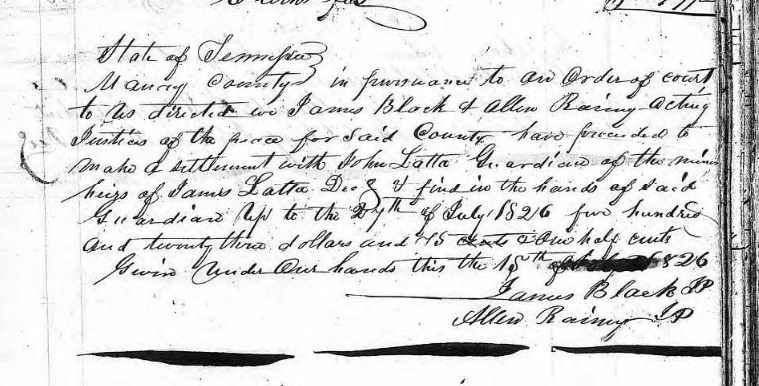 State of Tennessee
Maury County in pursuance to an Order of court
to us directed we James Black & Allen Rainey acting
Justices of the peace for Said County have proceeded to
make a settlement with John Latta Guardian of the minor
heirs of James Latta Decd & find in the hands of said
Guardian Up to the 27th of July 1826 five hundred
and twenty three dollars and 75 cents & one half cents
Given Under Our hands this the 15th of 1826
James Black JP
Allen Rainey JP